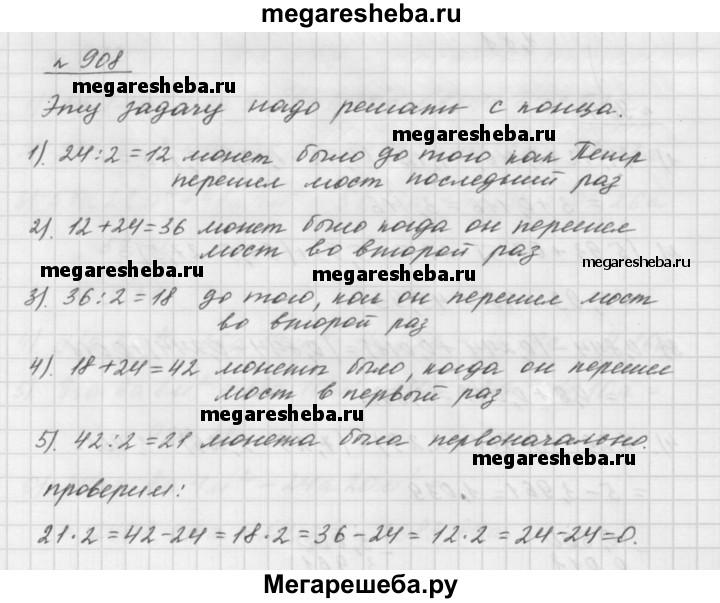 megaresheba.ru
№ 908
megaresheba.ru
Эту задачу надо решать с конца.
megaresheba.ru
1). 24:2=12 монет было до того как Петр
перешел мост последний раз
2). 12+24=36 монет было когда он перешел
мост во второй раз
megaresheba.ru
megaresheba.ru
megaresheba.ru
3). 36:2=18 до того, как он перешел мост
во второй раз
4). 18+24=42 монеты было, когда он перешел
мост в первый раз
megaresheba.ru
5). 42:2=21 монета была первоначально.
megaresheba.ru
проверим:
21·2=42-24=18·2=36-24=12·2=24-24=0.
Мегарешеба.ру